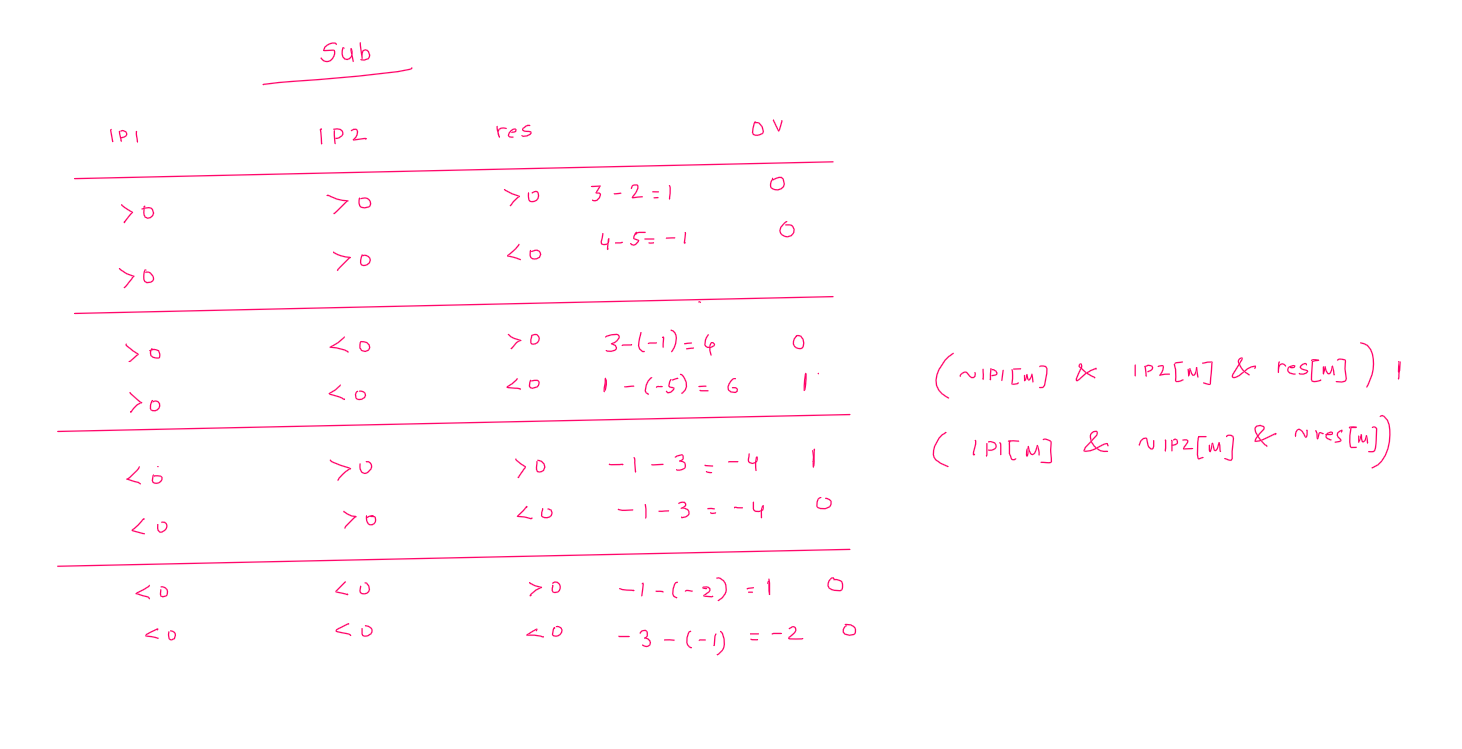 Sub
IP1 IP2 res OV
>0 >0 >0 3-2=1 0
>0 >0 <0 4-5=-1 0
>0 <0 >0 3-(-1)=4 0
>0 <0 <0 1-(-5)=6 1
<0 >0 >0 -1-3=-4 1
<0 >0 <0 -1-3=-4 0
<0 <0 >0 -1-(-2)=1 0
<0 <0 <0 -3-(-1)=-2 0
(~IP1[M] & IP2[M] & res[M]) |
(IP1[M] & ~IP2[M] & ~res[M])